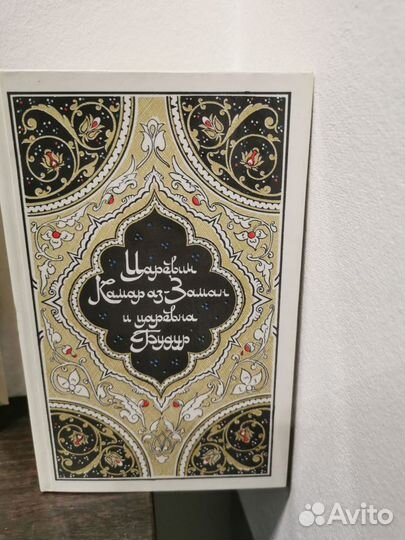 Царевич
Камар аз-Заман
и царевна
Будур
Avito